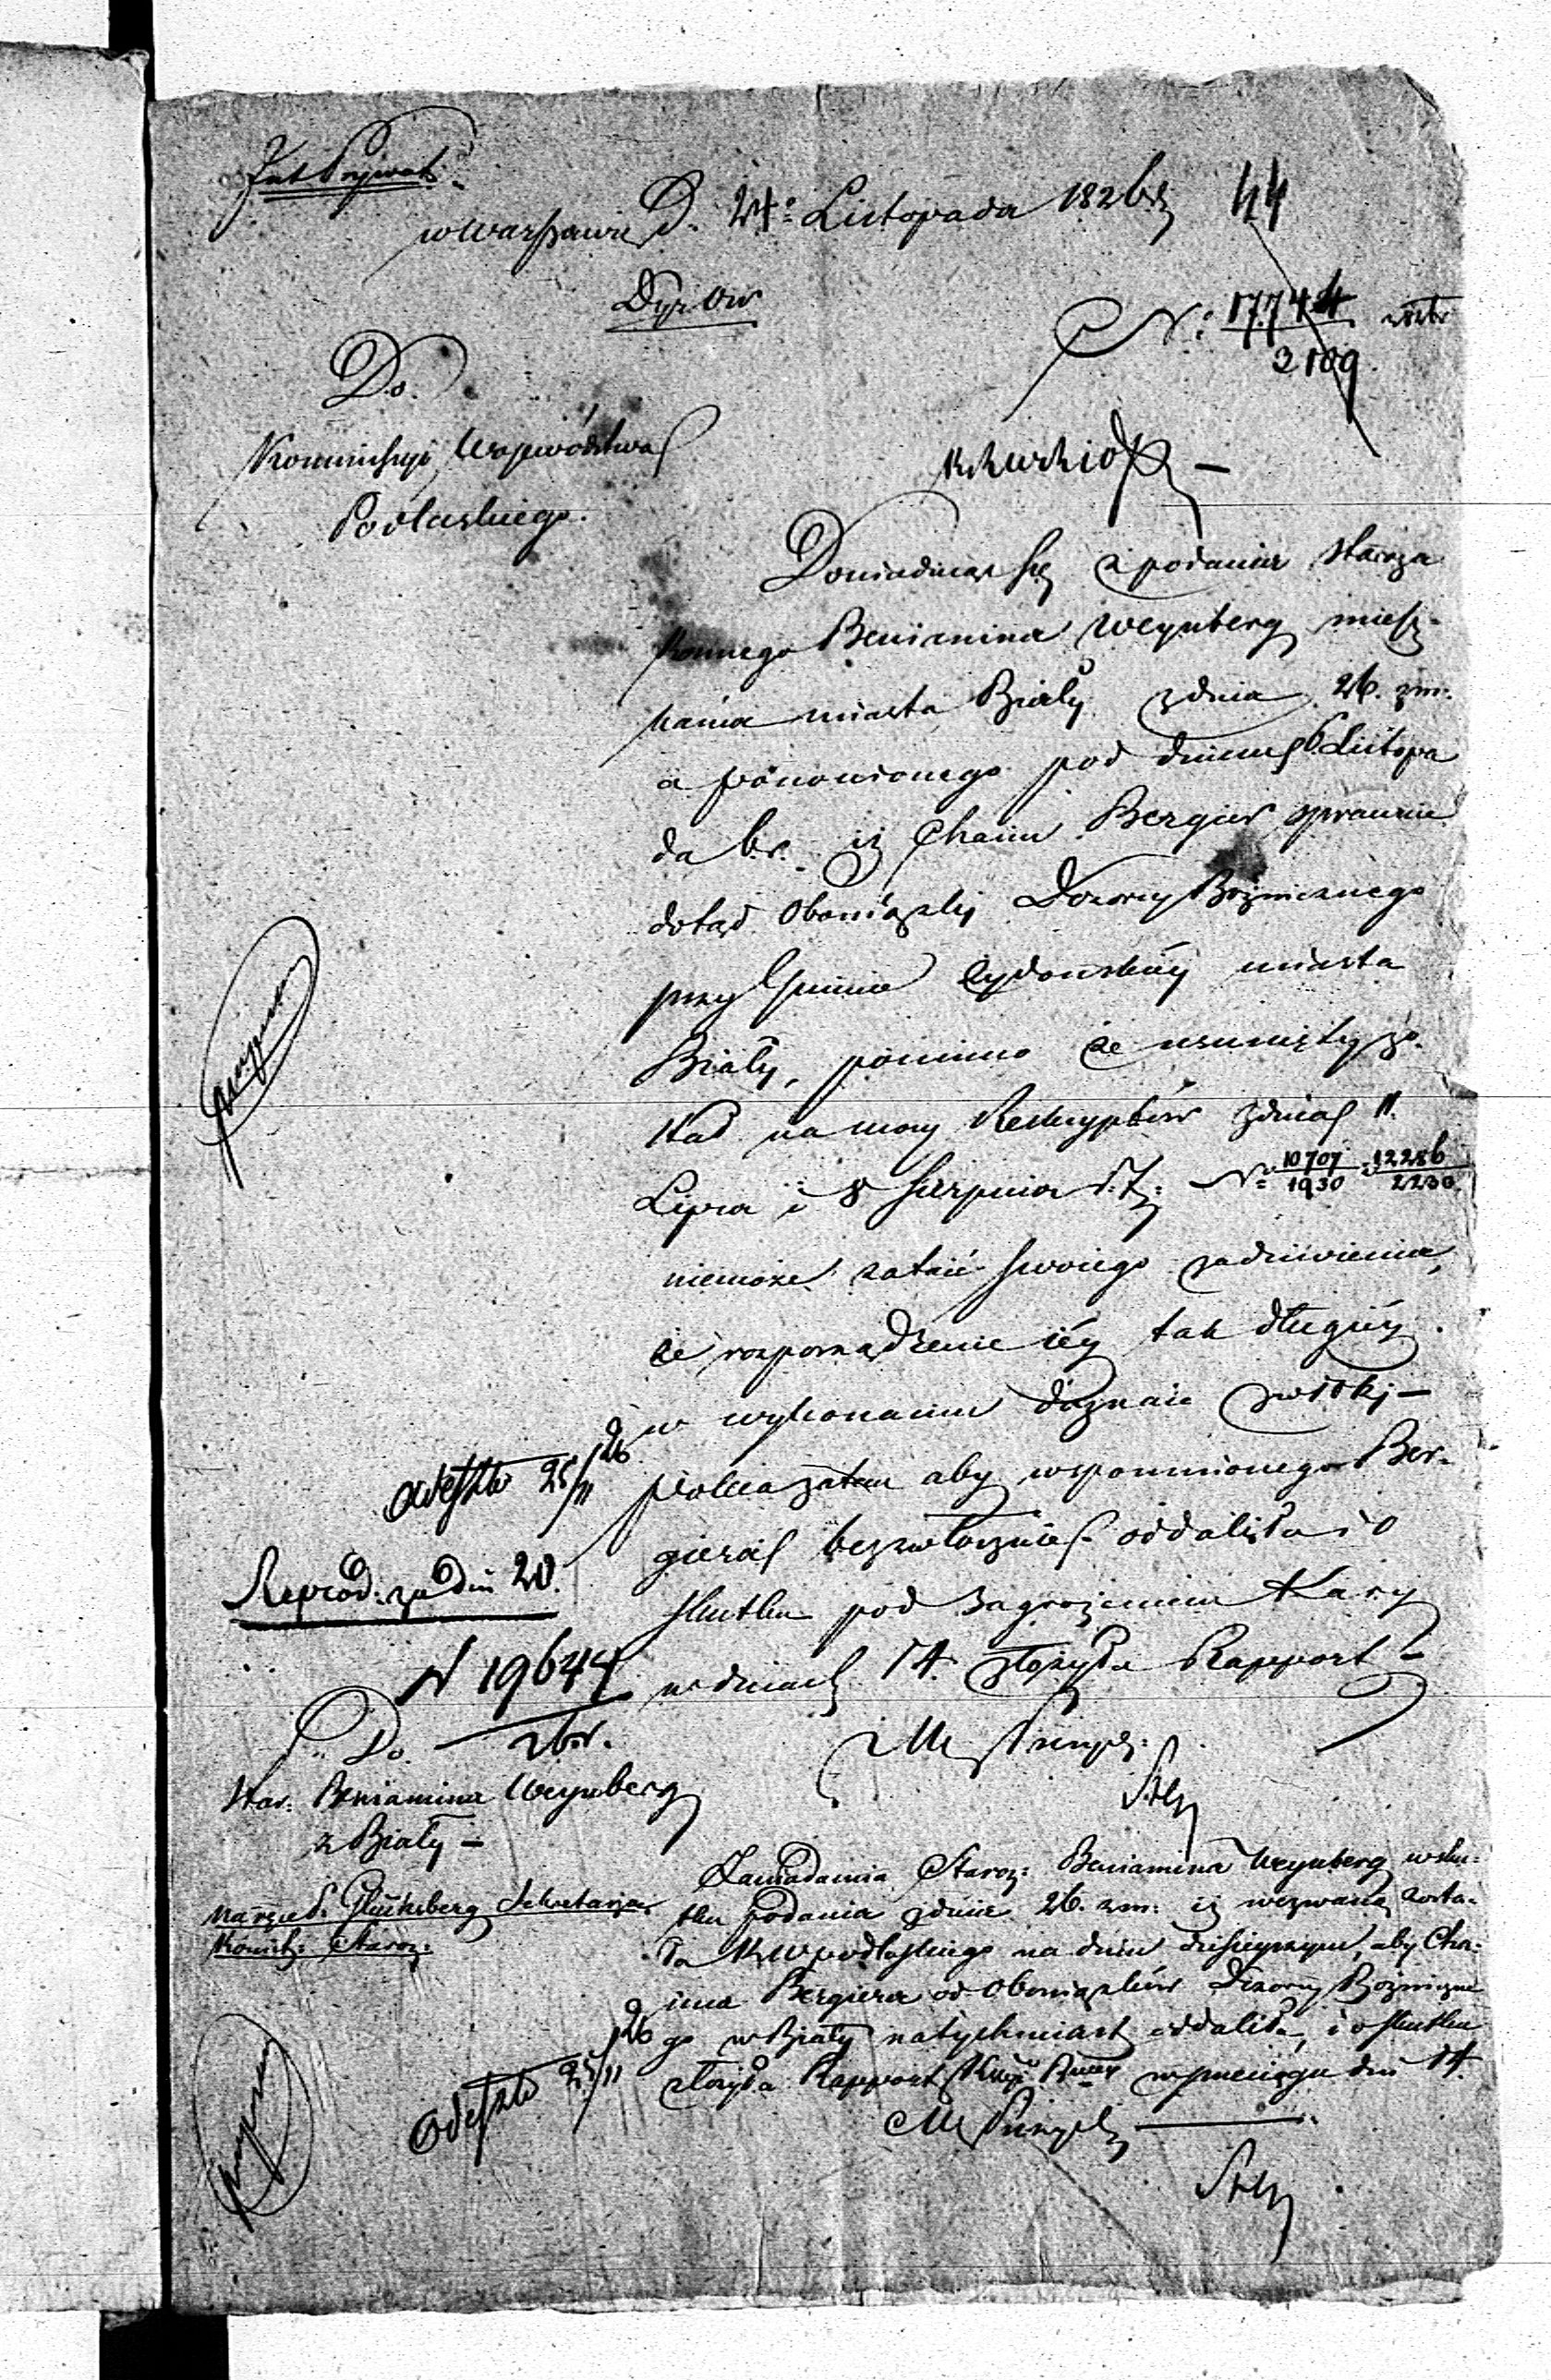 w Warszawie D. 24º Listopada 1826 r.
44
Nº 17744
3109.
Do
Kommissyi Województwa
Podlaskiego.
Dowiadując się z podania staroza
konnego Beniamina Weynberg miesz-
kańca miasta Biały z dnia 26. zm.
a ponowionego pod dniem 6 Listopa
da b.r. iż Chaim Bergier sprawuie
dotąd Obowiązki Dozorcy Bożnicznego
przy Gminie Żydowskiéy miasta
Biały, pomimo że usunięty zo-
stał na mocy Reskryptów z dnia 11.
Lipca i 8 Sierpnia r. t. Nº 10707/1930 12286/2230
niemoże zataić swoiego zadziwienia,
że rozporządzenie iéy tak długiéy
w wykonaniu doznaie zwłoki –
poleca zatem aby wspomnionego Ber-
giera bezzwłocznie oddaliła i o
skutku pod zagrożeniem Kary
w dniach 14. złożyła Rapport –
odeszło 25/11 26
Reprod. za dni 20.
N 19644
26 r.
Do
Star: Beniamina Weynberg
z Biały –
na ręce P. Glücksberg Sekretarza
Komit: Staroz:
Zawiadamia Staroz: Beniamina Weynberg w sku-
tku podania z dnia 26. zm. iż wezwaną zosta-
ła KW podlaskiego na dniu dzisieyszym, aby Cha-
ima Bergiera od Obowiązków Dozorcy Bożniczne
go w Biały natychmiast oddaliła, i o skutku
złożyła Rapport w przeciągu dni 14.
odeszło 25/11 26